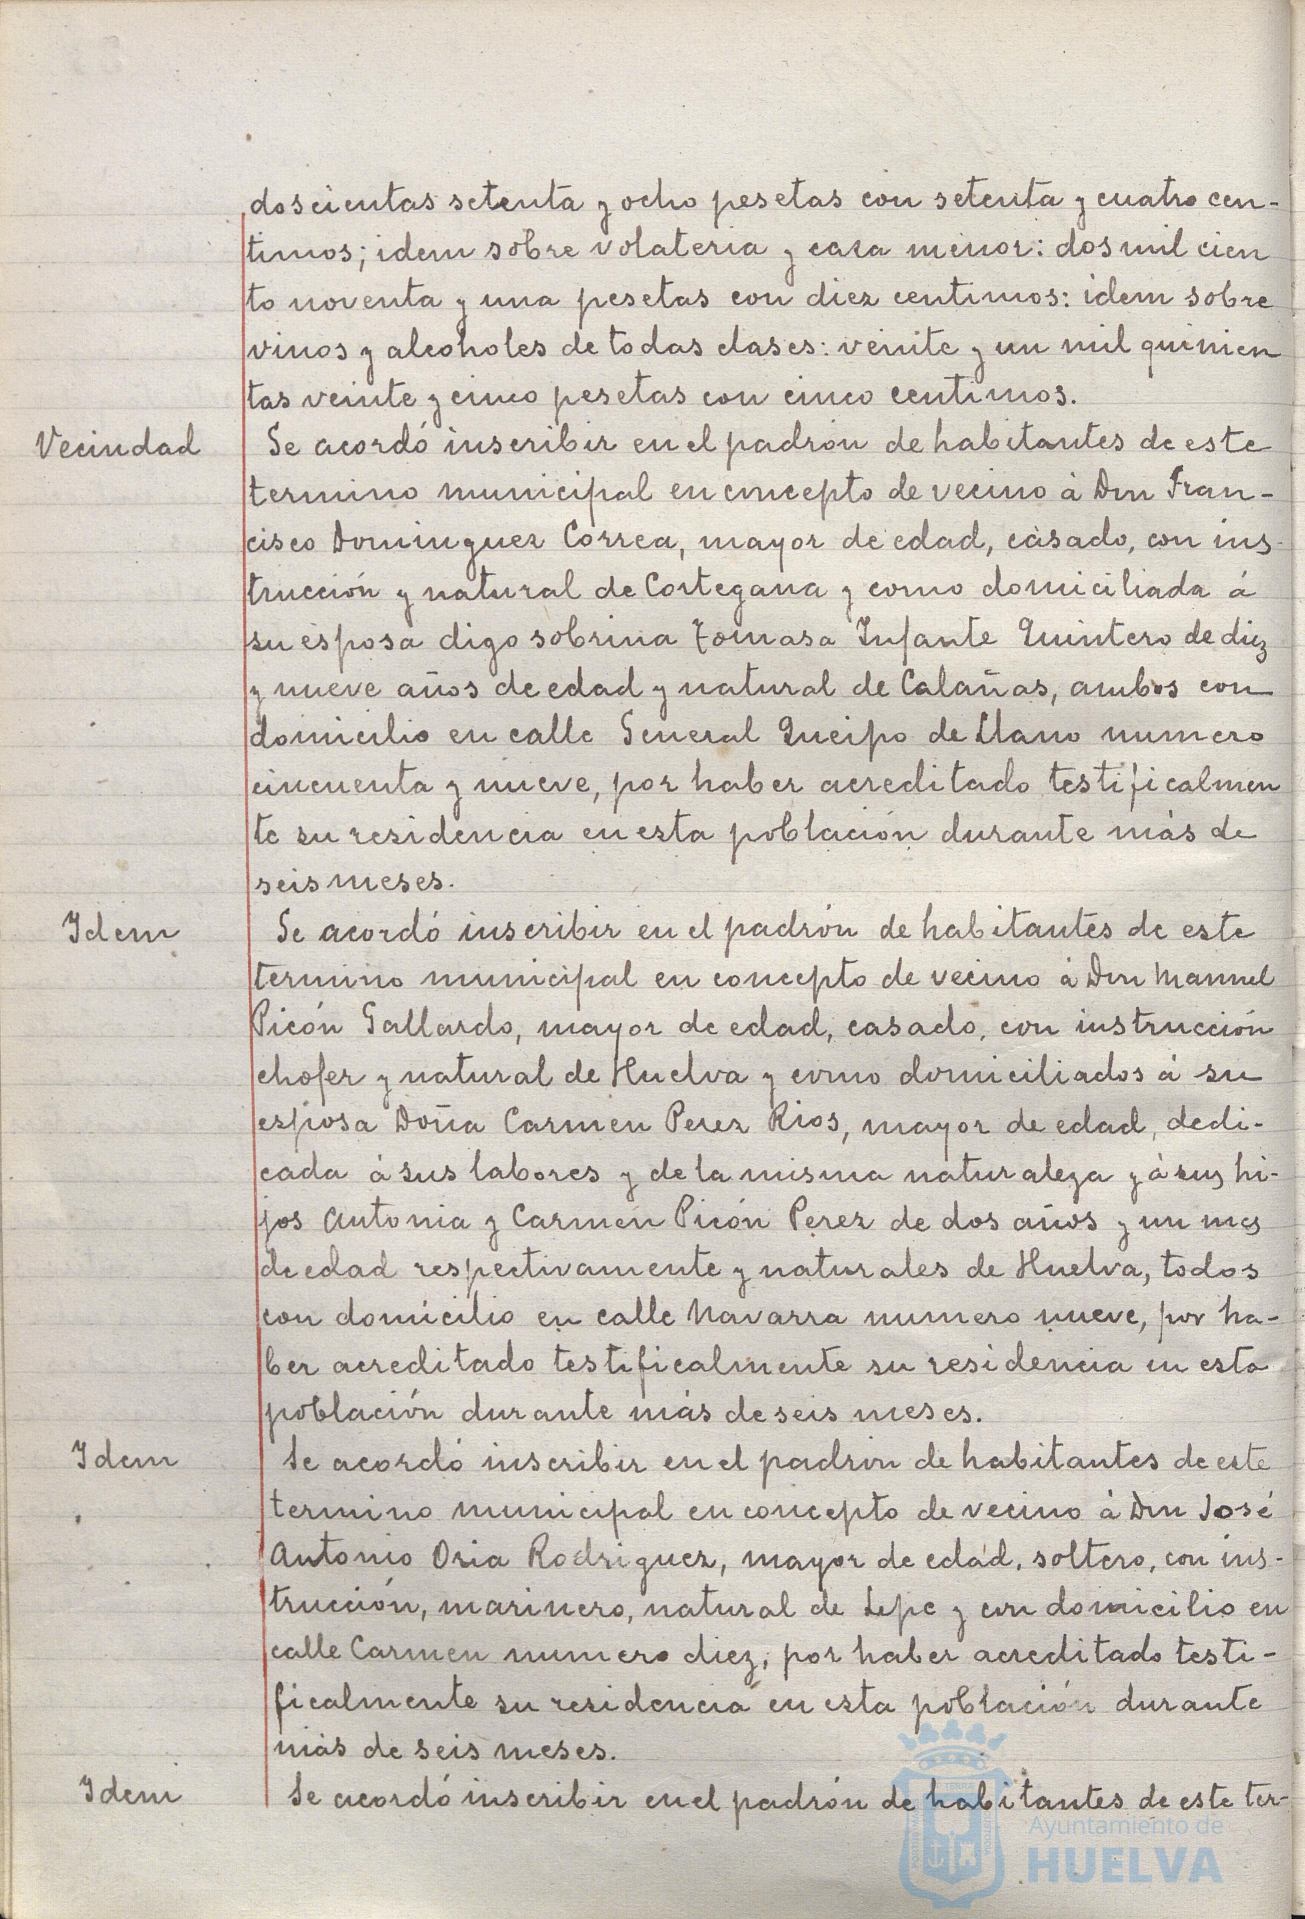 doscientas setenta y ocho pesetas con setenta y cuatro cen-
timos; idem sobre volateria y caza menor: dos mil cien
to noventa y una pesetas con diez centimos: idem sobre
vinos y alcoholes de todas clases: veinte y un mil quinien
tas veinte y cinco pesetas con cinco centimos.
Vecindad Se acordó inscribir en el padrón de habitantes de este
termino municipal en concepto de vecino á Don Fran-
cisco Dominguez Correa, mayor de edad, casado, con ins-
trucción y natural de Cortegana y como domiciliada á
su esposa digo sobrina Tomasa Infante Quintero de diez
y nueve años de edad y natural de Calañas, ambos con
domicilio en calle General Queipo de Llano numero
cincuenta y nueve, por haber acreditado testificalmen
te su residencia en esta población durante más de
seis meses.
Idem Se acordó inscribir en el padrón de habitantes de este
termino municipal en concepto de vecino á Don Manuel
Picón Gallardo, mayor de edad, casado, con instrucción
chofer y natural de Huelva y como domiciliados á su
esposa Doña Carmen Perez Rios, mayor de edad, dedi-
cada á sus labores y de la misma naturaleza y á sus hi-
jos Antonia y Carmen Picón Perez de dos años y un mes
de edad respectivamente y naturales de Huelva, todos
con domicilio en calle Navarra numero nueve, por ha-
ber acreditado testificalmente su residencia en esta
población durante más de seis meses.
Idem Se acordó inscribir en el padrón de habitantes de este
termino municipal en concepto de vecino á Don José
Antonio Oria Rodriguez, mayor de edad, soltero, con ins-
trucción, marinero, natural de Lepe y con domicilio en
calle Carmen numero diez, por haber acreditado testi-
ficalmente su residencia en esta población durante
más de seis meses.
Idem Se acordó inscribir en el padrón de habitantes de este ter-
Ayuntamiento de
HUELVA